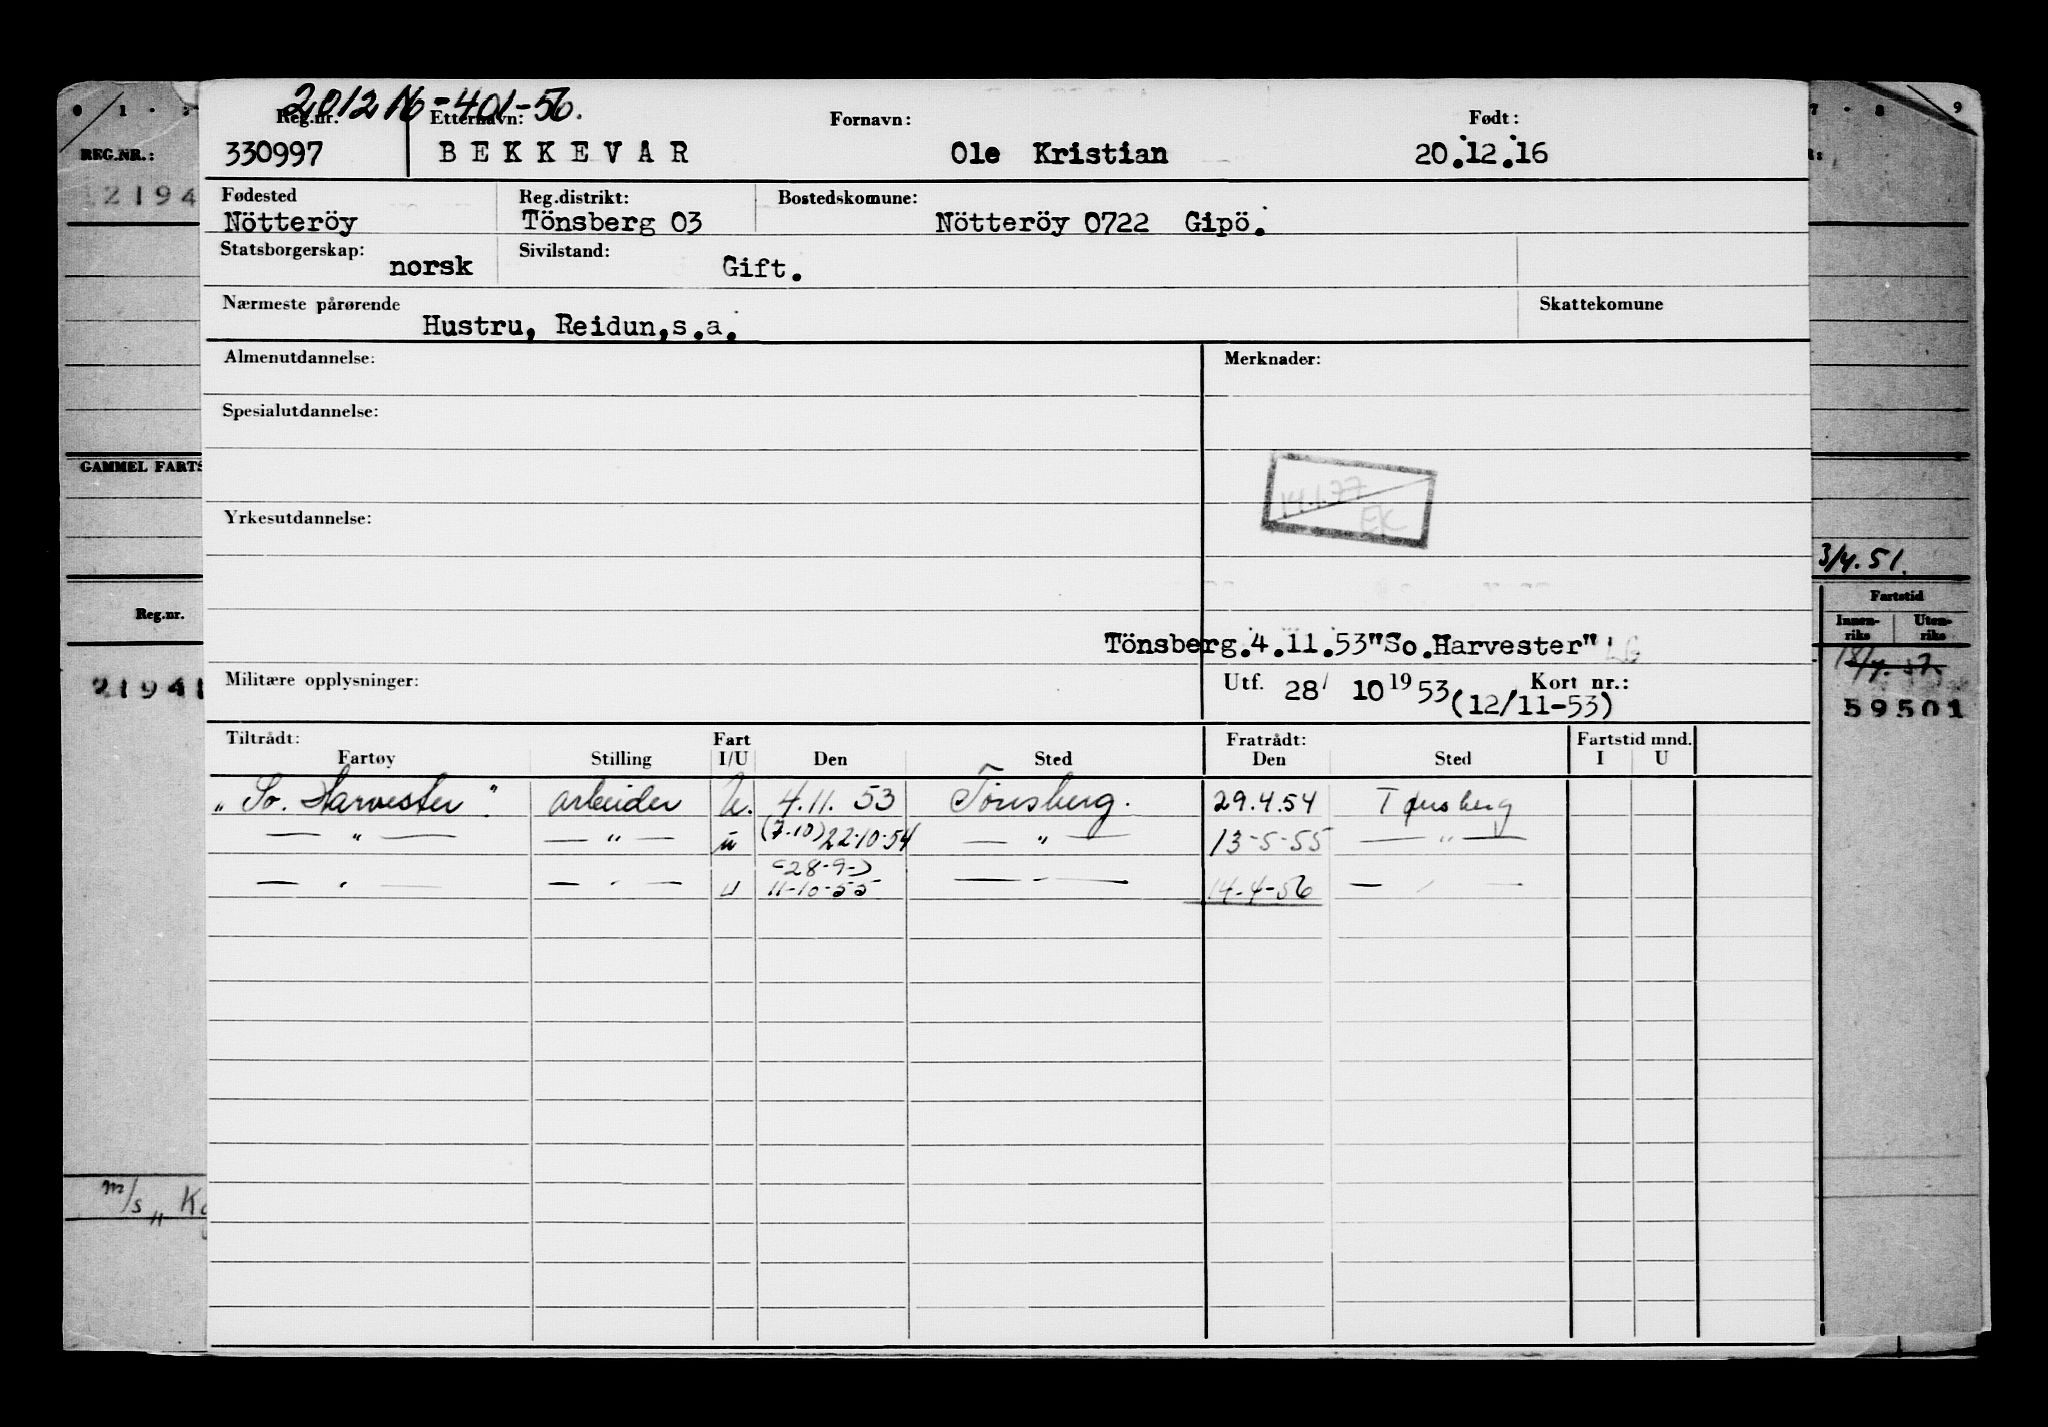 201216-401-56.
Reg.nr. Etternavn: Fornavn: Født:
330997 BEKKEVAR Ole Kristian 20.12.16
Fødested Reg.distrikt: Bostedskomune:
Nötteröy Tönsberg 03 Nötteröy 0722 Gipö.
Statsborgerskap: norsk Sivilstand: Gift.
Nærmeste pårørende Skattekomune
Hustru, Reidun,s.a.
Almenutdannelse: Merknader:
Spesialutdannelse:
14.1.77
EK
Yrkesutdannelse:
Tönsberg.4.11.53"So.Harvester" LG
Militære opplysninger: Utf. 28/ 10 19 53 Kort nr.:
(12/11-53)
Tiltrådt: Fart Fratrådt: Fartstid mnd.
Fartøy Stilling I/U Den Sted Den Sted I U
"So. Harvester". arbeider U. 4.11.53 Tönsberg. 29.4.54 Tønsberg
— " — — " — u (7.10) 22.10.54 — " — 13-5-55 — " —
(28-9-)
— " — — " — u 11-10-55 — " — 14-4-56 — " —
0 1
REG.NR.:
2194
GAMMEL FARTS
Reg.nr.
21941
m/s "
7 8 9
3/4.51.
Fartstid
Innen-riks Uten-riks
59501